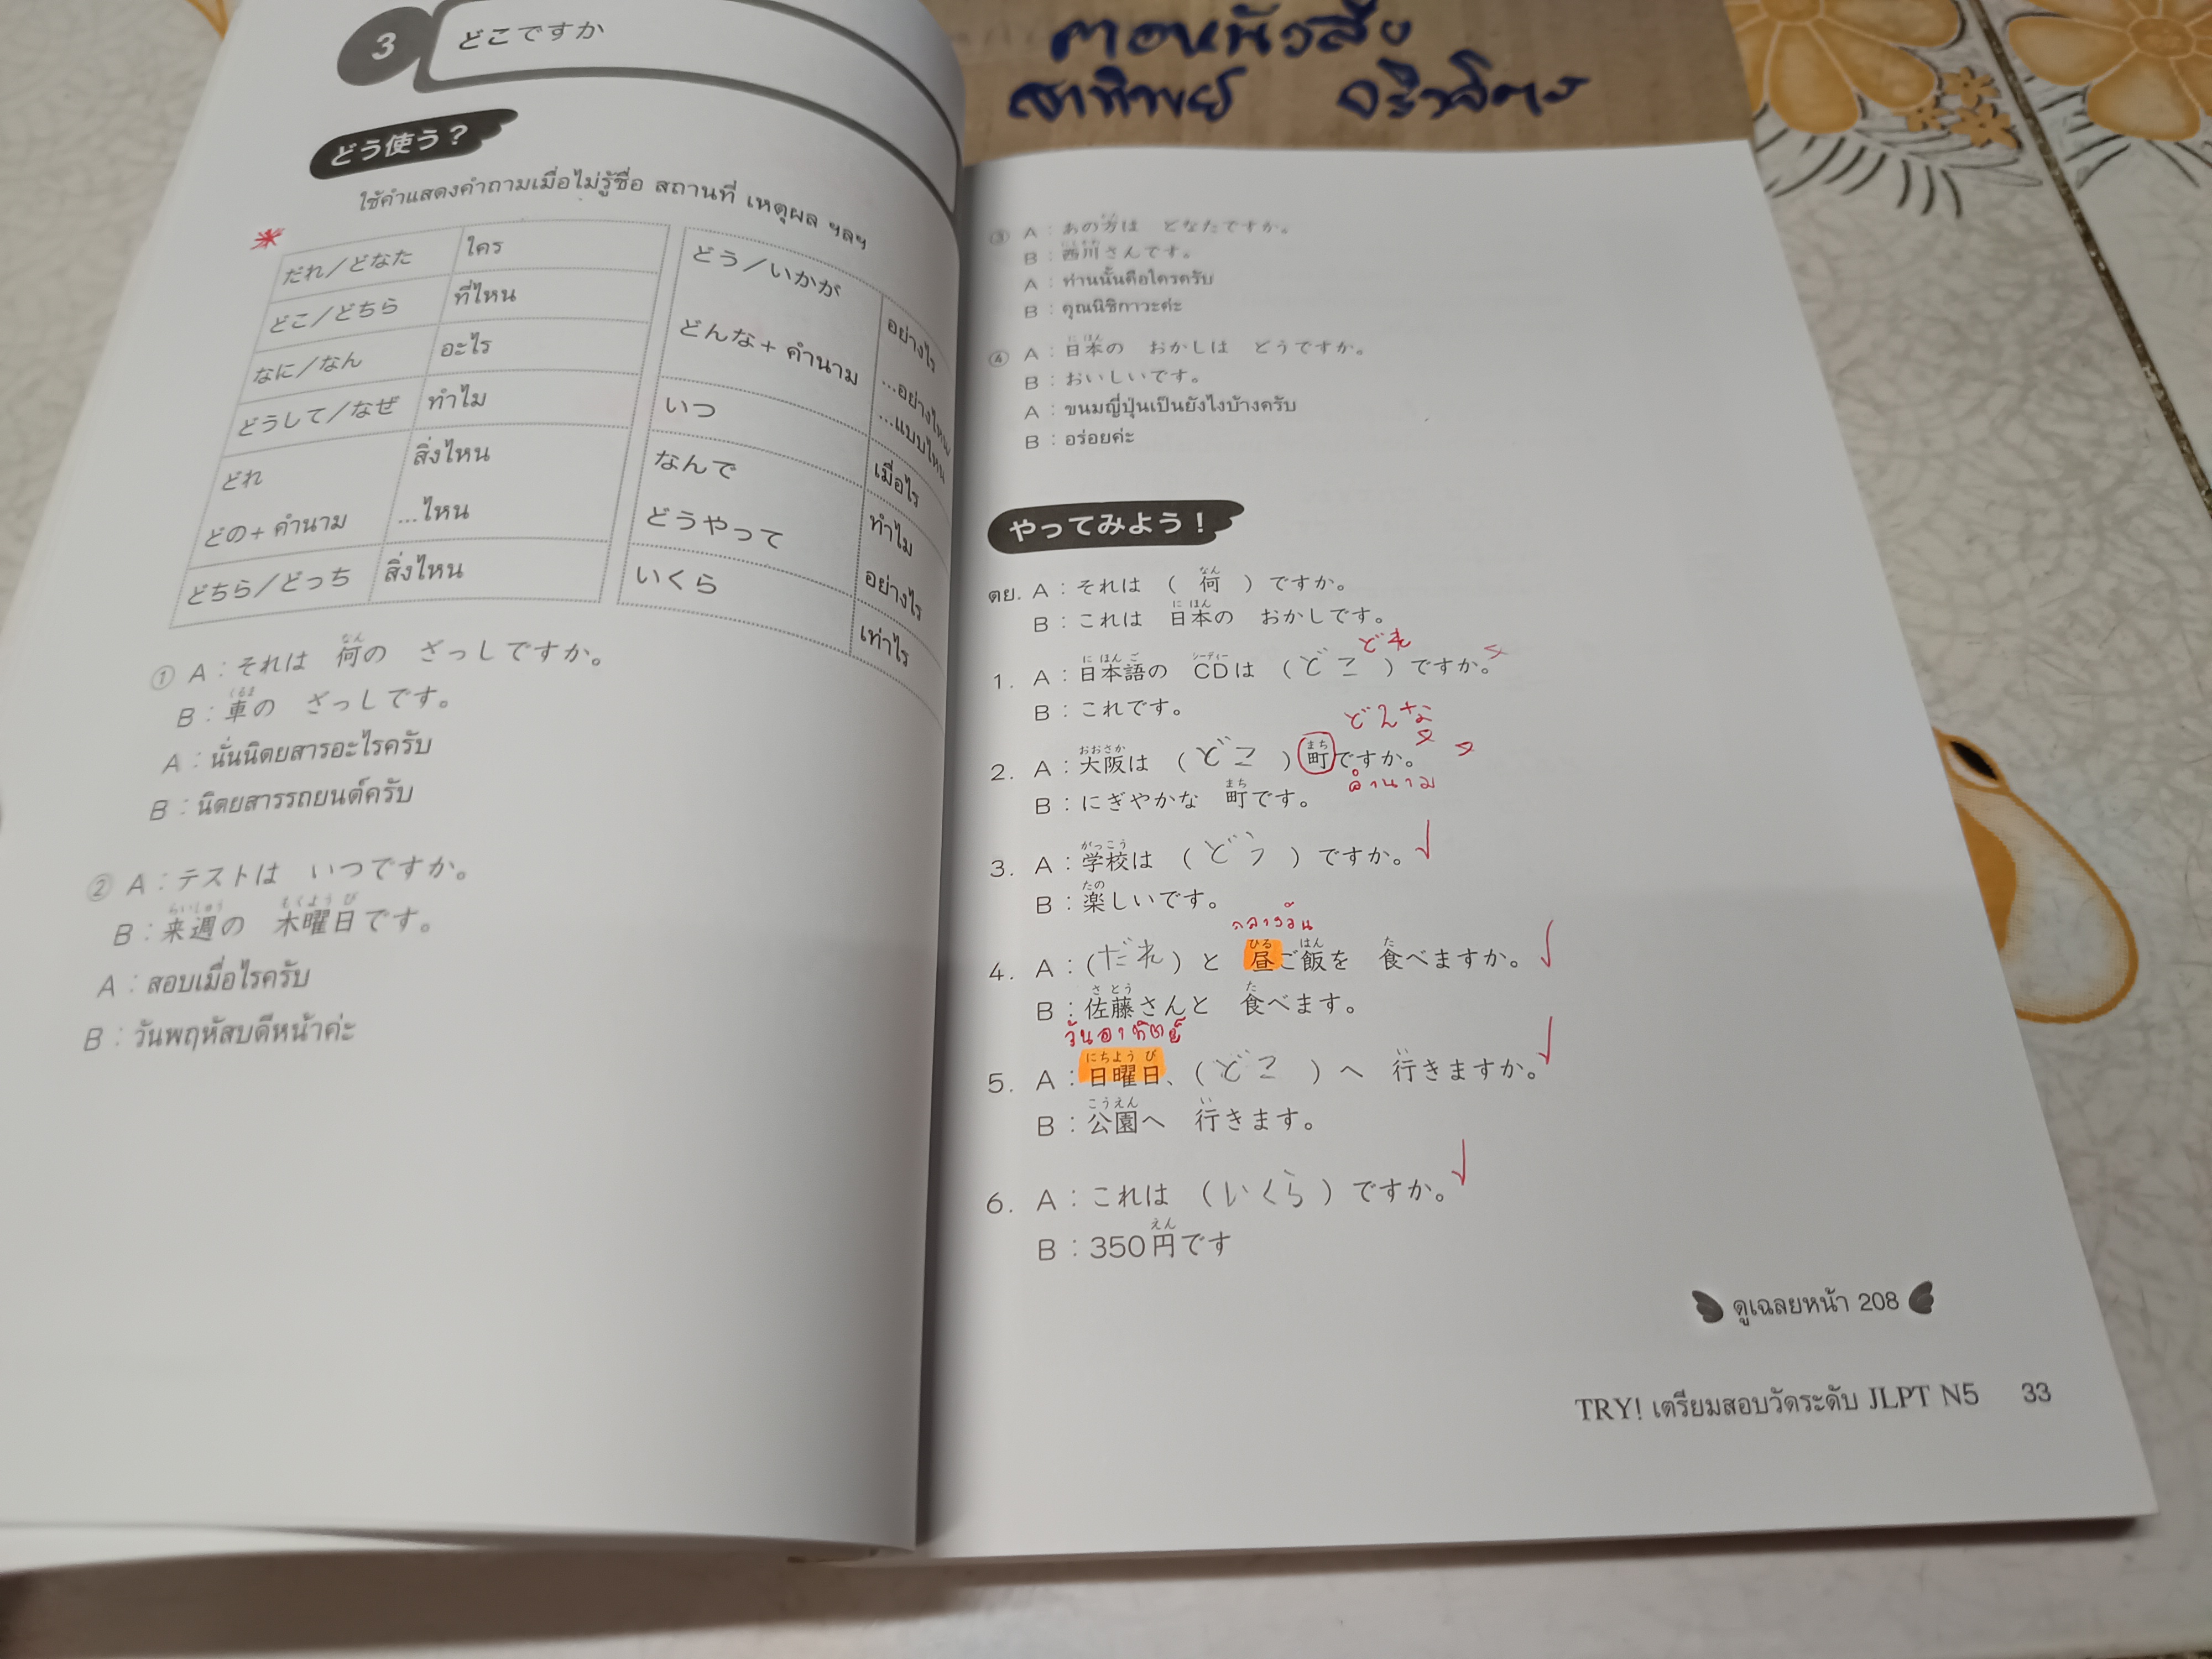 3 どこですか
どう使う？
ใช้คำแสดงคำถามเมื่อไม่รู้ชื่อ สถานที่ เหตุผล ฯลฯ
だれ／どなた ใคร
どこ／どちら ที่ไหน
なに／なん อะไร
どうして／なぜ ทำไม
どれ สิ่งไหน
どの+ คำนาม ...ไหน
どちら／どっち สิ่งไหน
どう／いかが อย่างไร
どんな+ คำนาม ...อย่างไหน
...แบบไหน
いつ เมื่อไร
なんで ทำไม
どうやって อย่างไร
いくら เท่าไร
① A：それは 何の ざっしですか。
なん
B：車の ざっしです。
くるま
A：นั่นนิตยสารอะไรครับ
B：นิตยสารรถยนต์ครับ
② A：テストは いつですか。
B：来週の 木曜日です。
らいしゅう もくようび
A：สอบเมื่อไรครับ
B：วันพฤหัสบดีหน้าค่ะ
ตอบหนังสือ
③ A：あの方は どなたですか。
B：西川さんです。
A：ท่านนั้นคือใครครับ
B：คุณนิชิกาวะค่ะ
④ A：日本の おかしは どうですか。
にほん
B：おいしいです。
A：ขนมญี่ปุ่นเป็นยังไงบ้างครับ
B：อร่อยค่ะ
やってみよう！
なん
ตย. A：それは （ 何 ）ですか。
にほん
B：これは 日本の おかしです。
どれ
にほんご シーディー
1. A：日本語の CDは （どこ）ですか。
B：これです。
どんな
おおさか まち
2. A：大阪は （どこ）町ですか。
คำนาม
まち
B：にぎやかな 町です。
がっこう
3. A：学校は （どう）ですか。
たの
B：楽しいです。
กลางวัน
ひる はん た
4. A：（だれ）と 昼ご飯を 食べますか。
さとう た
B：佐藤さんと 食べます。
วันอาทิตย์
にちようび い
5. A：日曜日、（どこ）へ 行きますか。
こうえん い
B：公園へ 行きます。
6. A：これは （いくら）ですか。
えん
B：350円です
ดูเฉลยหน้า 208
TRY! เตรียมสอบวัดระดับ JLPT N5 33